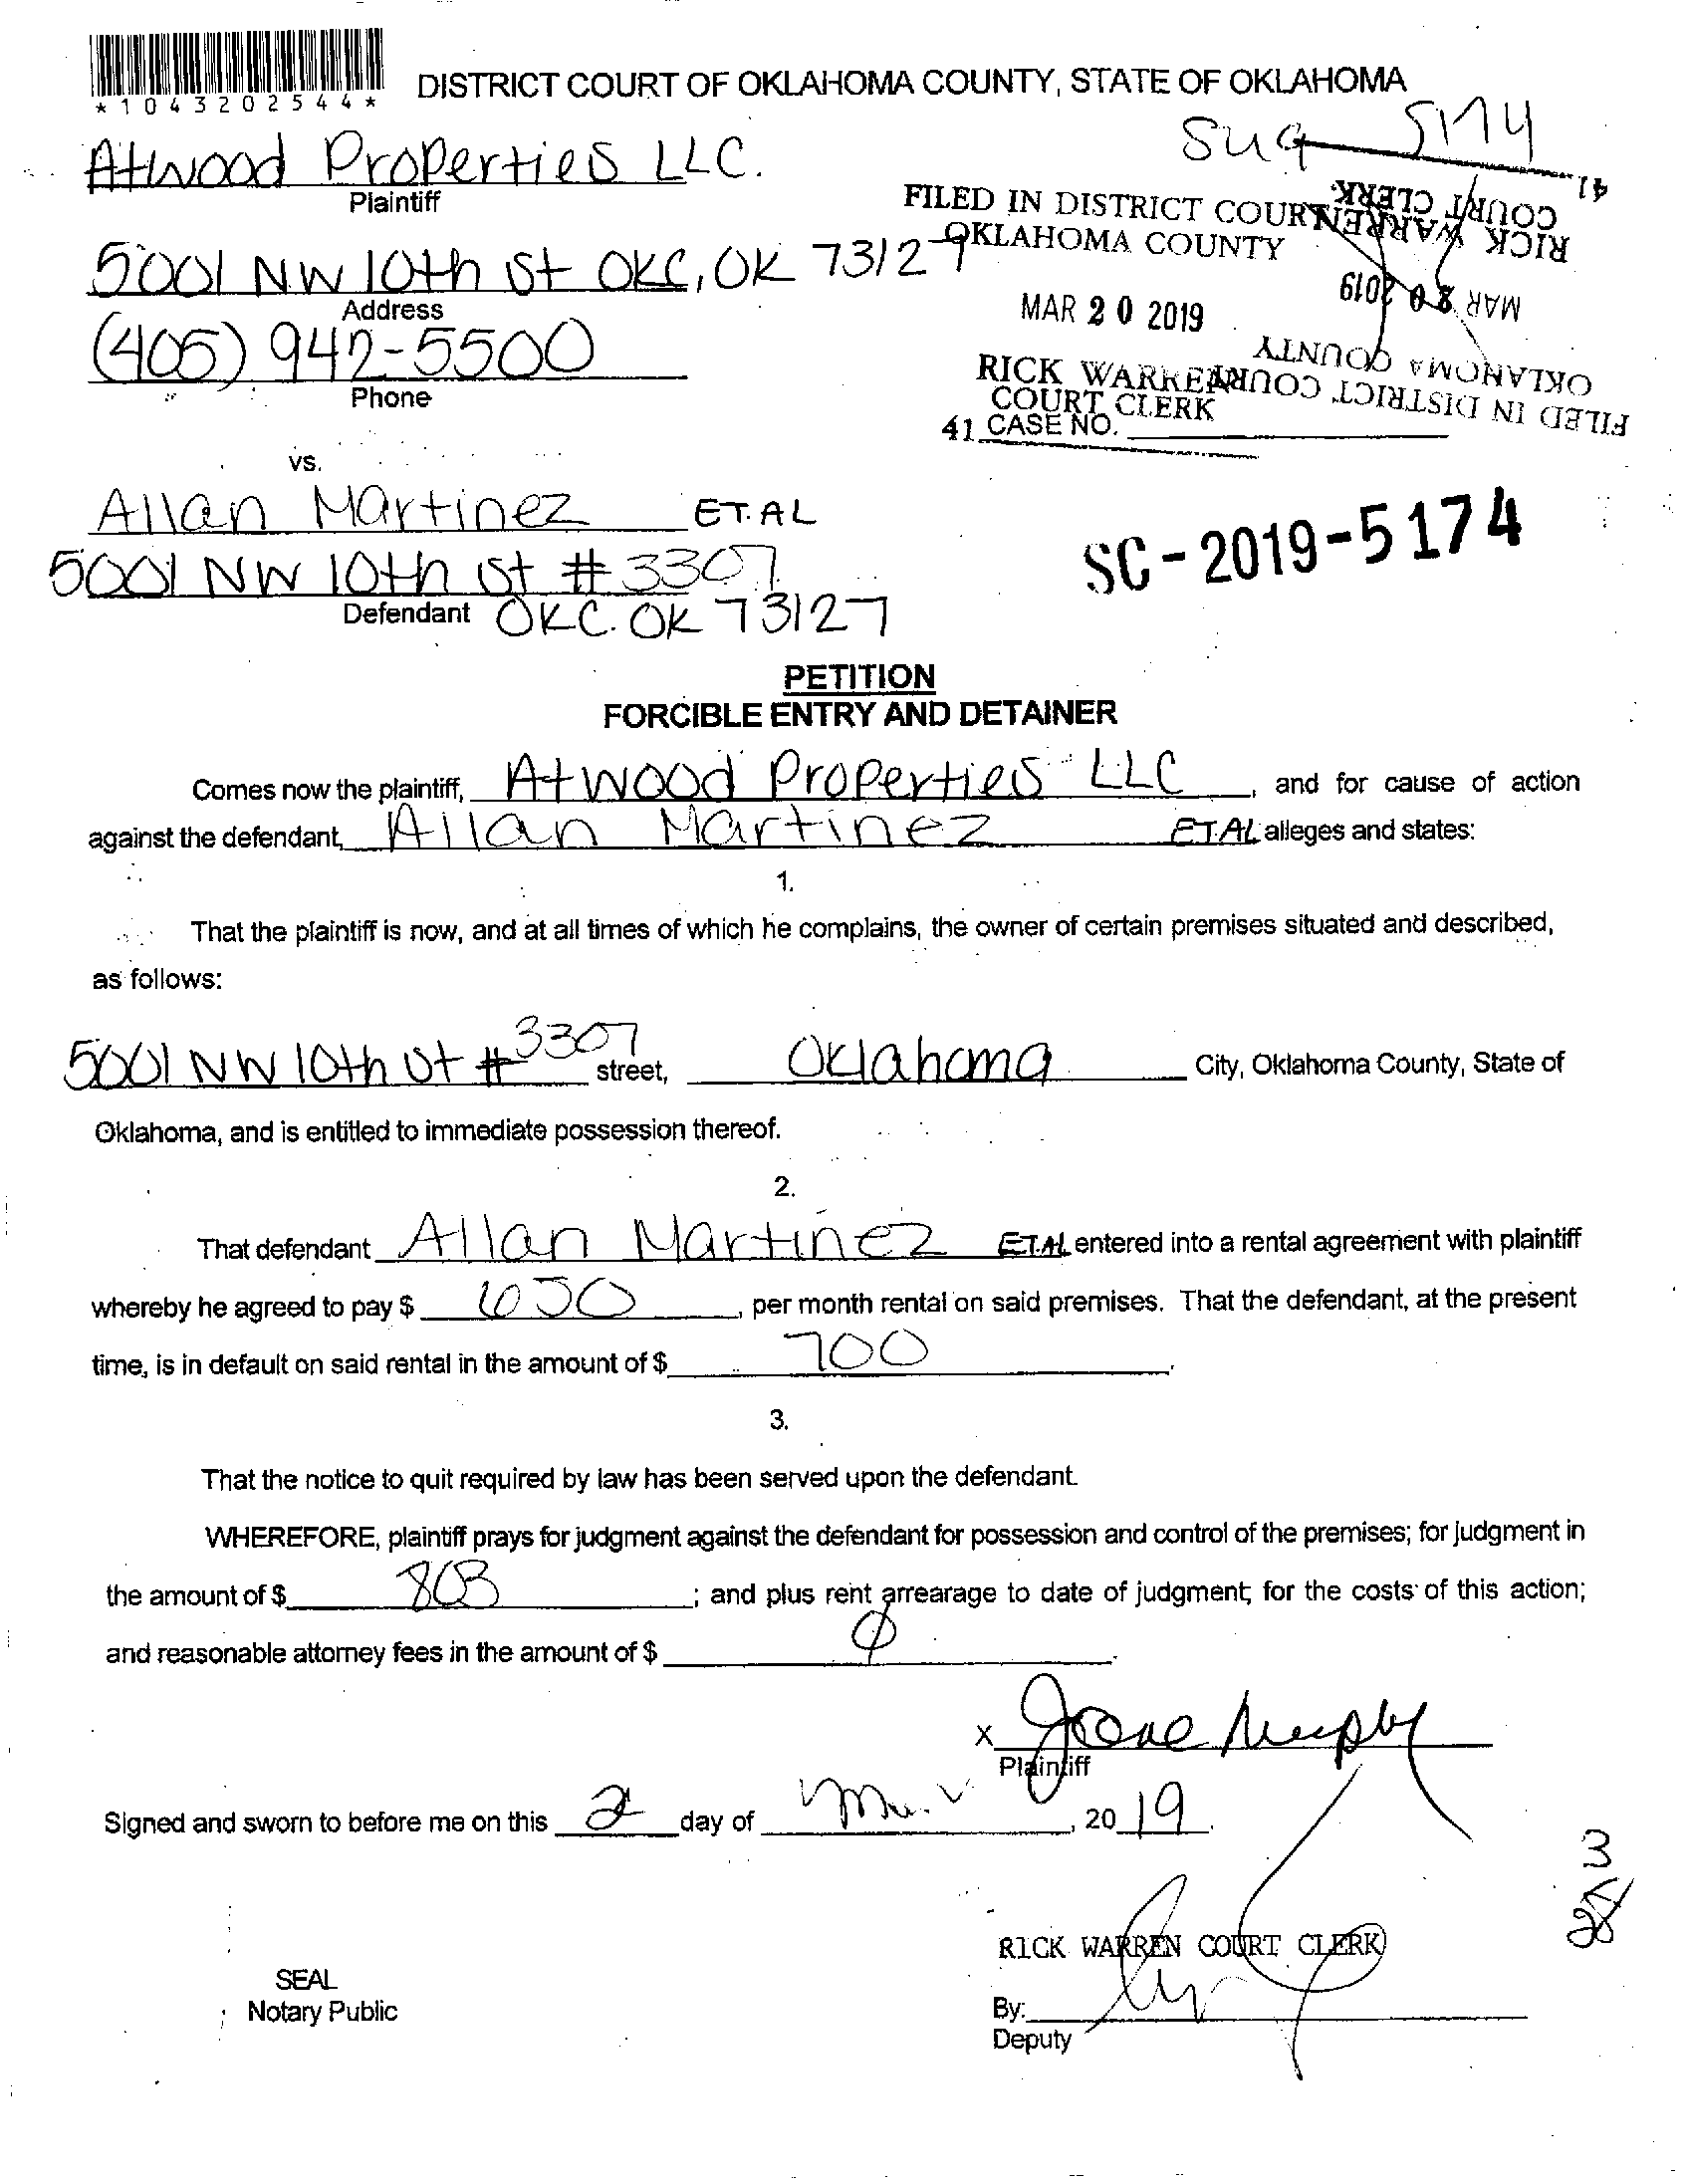 *1043202544*
DISTRICT COURT OF OKLAHOMA COUNTY, STATE OF OKLAHOMA
5174
Atwood Properties LLC.
Plaintiff
FILED IN DISTRICT COURT
OKLAHOMA COUNTY
5001 NW 10th St OKC, OK 73127
Address
MAR 20 2019
(405) 942-5500
Phone
RICK WARREN
COURT CLERK
41 CASE NO.
FILED IN DISTRICT COURT
OKLAHOMA COUNTY
MAR 20 2019
RICK WARREN
COURT CLERK
41
vs.
Allan Martinez ET.AL
5001 NW 10th St # 3307
Defendant OKC. OK 73127
SC-2019-5174
PETITION
FORCIBLE ENTRY AND DETAINER
Comes now the plaintiff, Atwood Properties LLC, and for cause of action
against the defendant, Allan Martinez ET.AL alleges and states:
1.
That the plaintiff is now, and at all times of which he complains, the owner of certain premises situated and described,
as follows:
5001 NW 10th St # 3307 street, Oklahoma City, Oklahoma County, State of
Oklahoma, and is entitled to immediate possession thereof.
2.
That defendant Allan Martinez ET.AL entered into a rental agreement with plaintiff
whereby he agreed to pay $ 650, per month rental on said premises. That the defendant, at the present
time, is in default on said rental in the amount of $ 700.
3.
That the notice to quit required by law has been served upon the defendant.
WHEREFORE, plaintiff prays for judgment against the defendant for possession and control of the premises; for judgment in
the amount of $ 803; and plus rent arrearage to date of judgment; for the costs of this action;
and reasonable attorney fees in the amount of $ Ø.
X
Plaintiff
Signed and sworn to before me on this 2 day of , 2019.
3
28
RICK WARREN COURT CLERK
SEAL
Notary Public
By:
Deputy